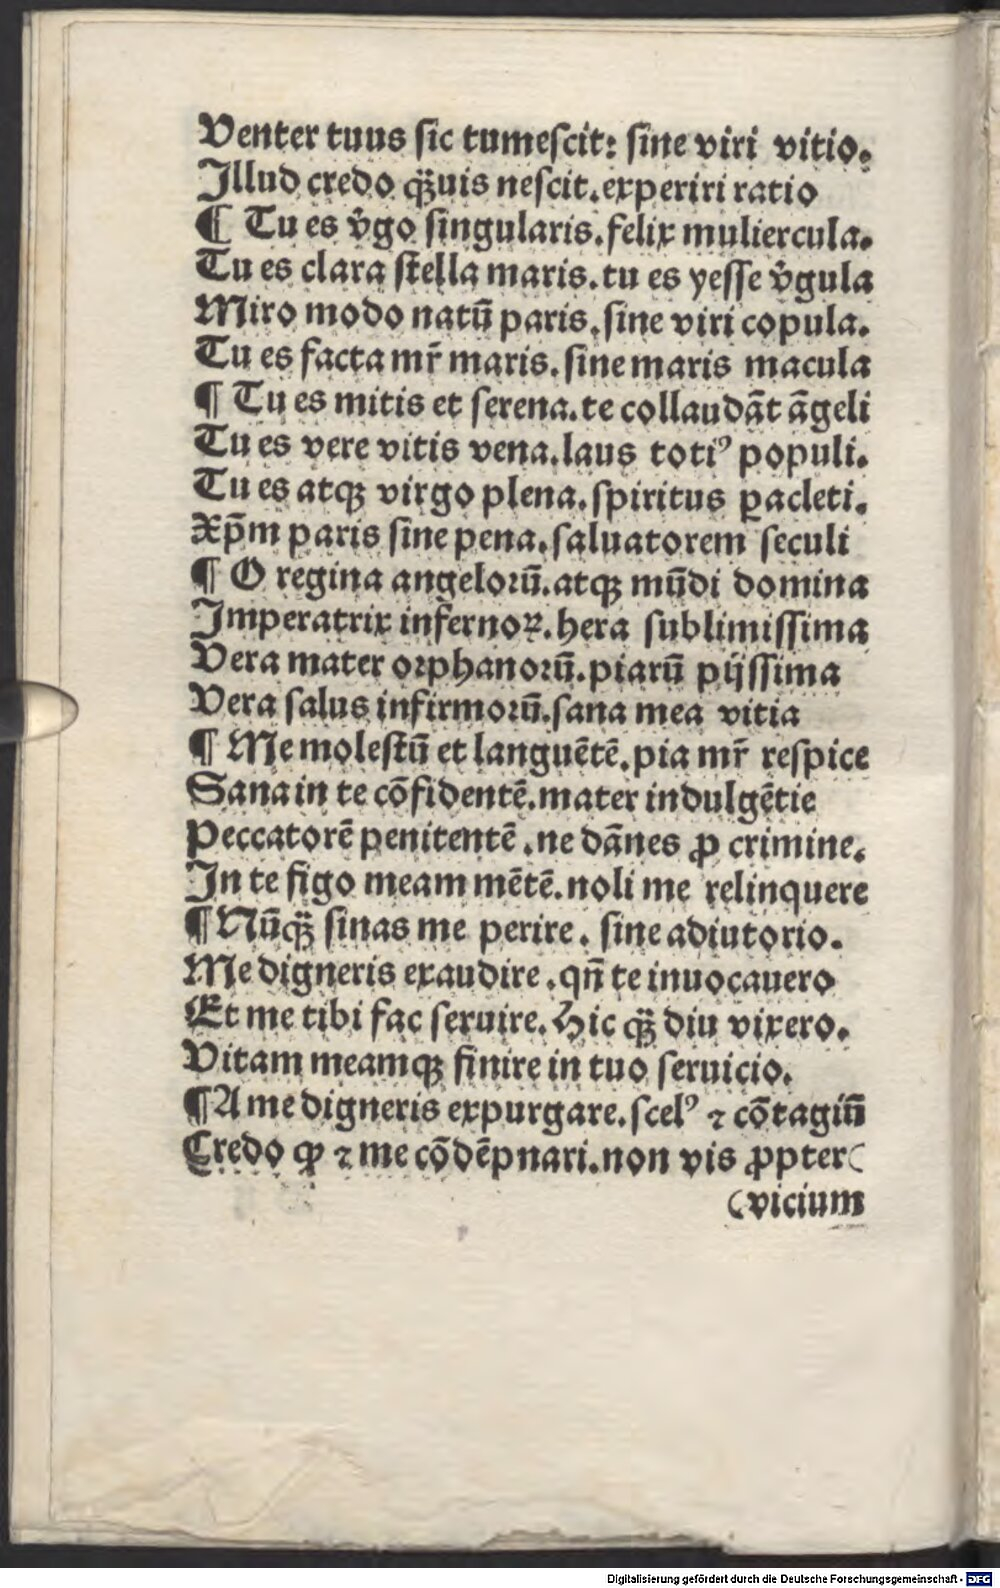 Venter tuus sic tumescit: sine viri vitio.
Illud credo qꝫ̈uis nescit.experiri ratio
¶ Tu es v̓go singularis.felix muliercula.
Tu es clara stella maris.tu es yesse v̓gula
Miro modo natū paris.sine viri copula.
Tu es facta mr̄ maris.sine maris macula
¶ Tu es mitis et serena.te collaudāt āgeli
Tu es vere vitis vena.laus totiꝰ populi.
Tu es atqꝫ virgo plena.spiritus ꝑacleti.
Xp̄m paris sine pena.saluatorem seculi
¶ O regina angelorū.atqꝫ mūdi domina
Imperatrix infernoꝝ.hera sublimissima
Vera mater orphanorū.piarū pijssima
Vera salus infirmorū.sana mea vitia
¶ Me molestū et languētē.pia mr̄ respice
Sana in te cōfidentē.mater indulgētie
Peccatorē penitentē.ne dānes ꝓ crimine.
In te figo meam mētē.noli me relinquere
¶ Nūqꝫ̈ sinas me perire. sine adiutorio.
Me digneris exaudire.qn̄ te inuocauero
Et me tibi fac seruire.Hic qꝫ̈ diu vixero.
Vitam meamqꝫ finire in tuo seruicio.
¶ A me digneris expurgare.scelꝰ ⁊ cōtagiū
Credo ꝙ ⁊ me cōdēpnari.non vis ꝓpter(
(vicium
Digitalisierung gefördert durch die Deutsche Forschungsgemeinschaft - DFG